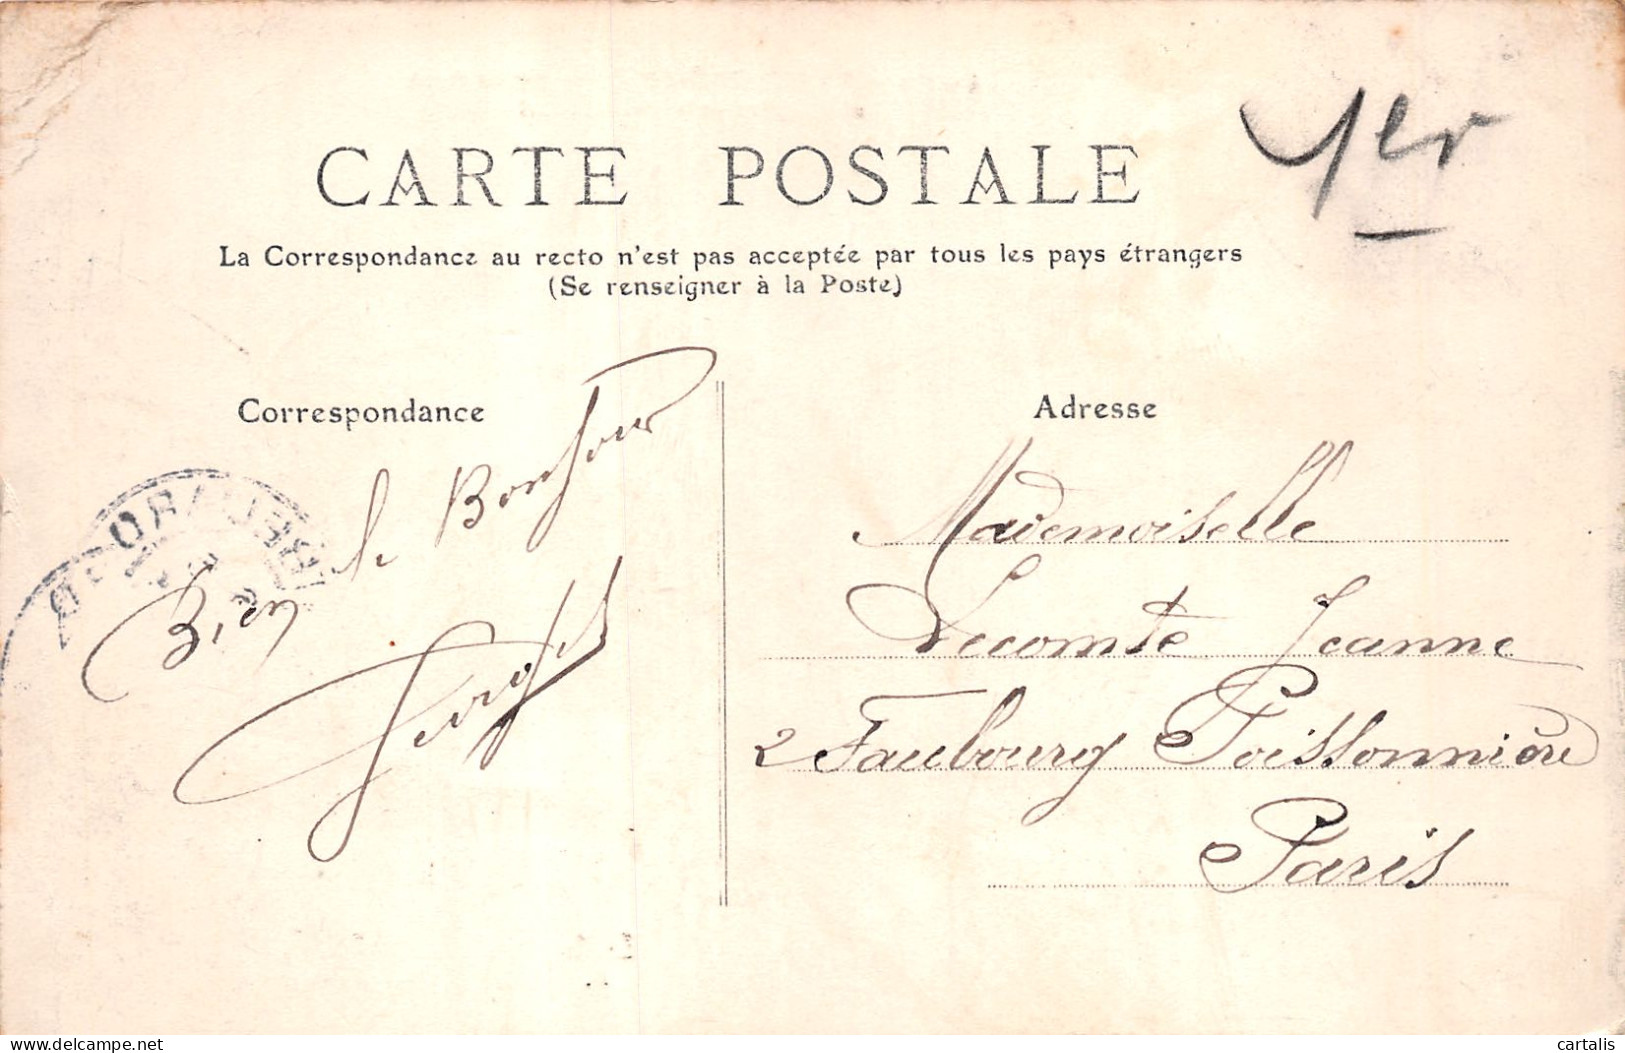 CARTE POSTALE
La Correspondance au recto n'est pas acceptée par tous les pays étrangers
(Se renseigner à la Poste)
Correspondance
Bien le Bonjour
Adresse
Mademoiselle
Lecomte Jeanne
2 Faubourg Poissonnière
Paris
www.delcampe.net
cartalis